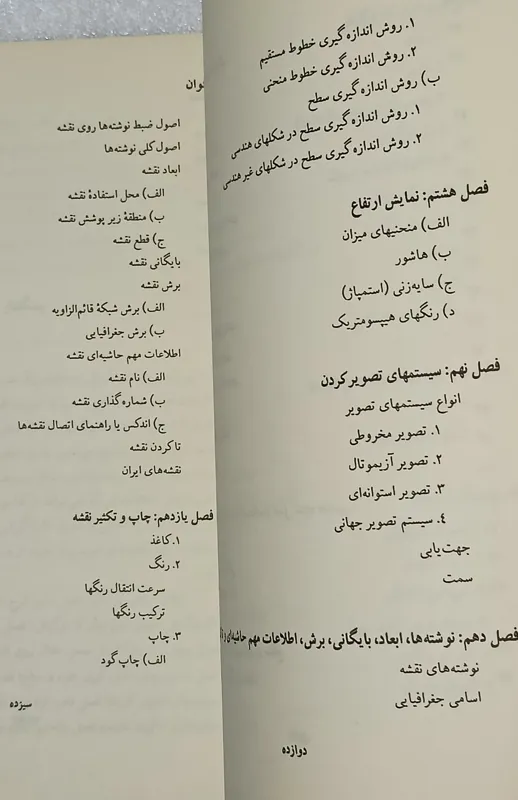 ۱. روش اندازه‌گیری خطوط مستقیم
۲. روش اندازه‌گیری خطوط منحنی
ب) روش اندازه‌گیری سطح
۱. روش اندازه‌گیری سطح در شکلهای هندسی
۲. روش اندازه‌گیری سطح در شکلهای غیر هندسی
فصل هشتم: نمایش ارتفاع
الف) منحنیهای میزان
ب) هاشور
ج) سایه‌زنی (استمپاژ)
د) رنگهای هیپسومتریک
فصل نهم: سیستمهای تصویر کردن
انواع سیستمهای تصویر
۱. تصویر مخروطی
۲. تصویر آزیموتال
۳. تصویر استوانه‌ای
٤. سیستم تصویر جهانی
جهت‌یابی
سمت
فصل دهم: نوشته‌ها، ابعاد، بایگانی، برش، اطلاعات مهم حاشیه‌ای و
نوشته‌های نقشه
اسامی جغرافیایی
دوازده
اصول ضبط نوشته‌ها روی نقشه
اصول کلی نوشته‌ها
ابعاد نقشه
الف) محل استفادهٔ نقشه
ب) منطقهٔ زیر پوشش نقشه
ج) قطع نقشه
بایگانی نقشه
برش نقشه
الف) برش شبکهٔ قائم‌الزاویه
ب) برش جغرافیایی
اطلاعات مهم حاشیه‌ای نقشه
الف) نام نقشه
ب) شماره‌گذاری نقشه
ج) اندکس یا راهنمای اتصال نقشه‌ها
تا کردن نقشه
نقشه‌های ایران
فصل یازدهم: چاپ و تکثیر نقشه
۱. کاغذ
۲. رنگ
سرعت انتقال رنگها
ترکیب رنگها
۳. چاپ
الف) چاپ گود
سیزده